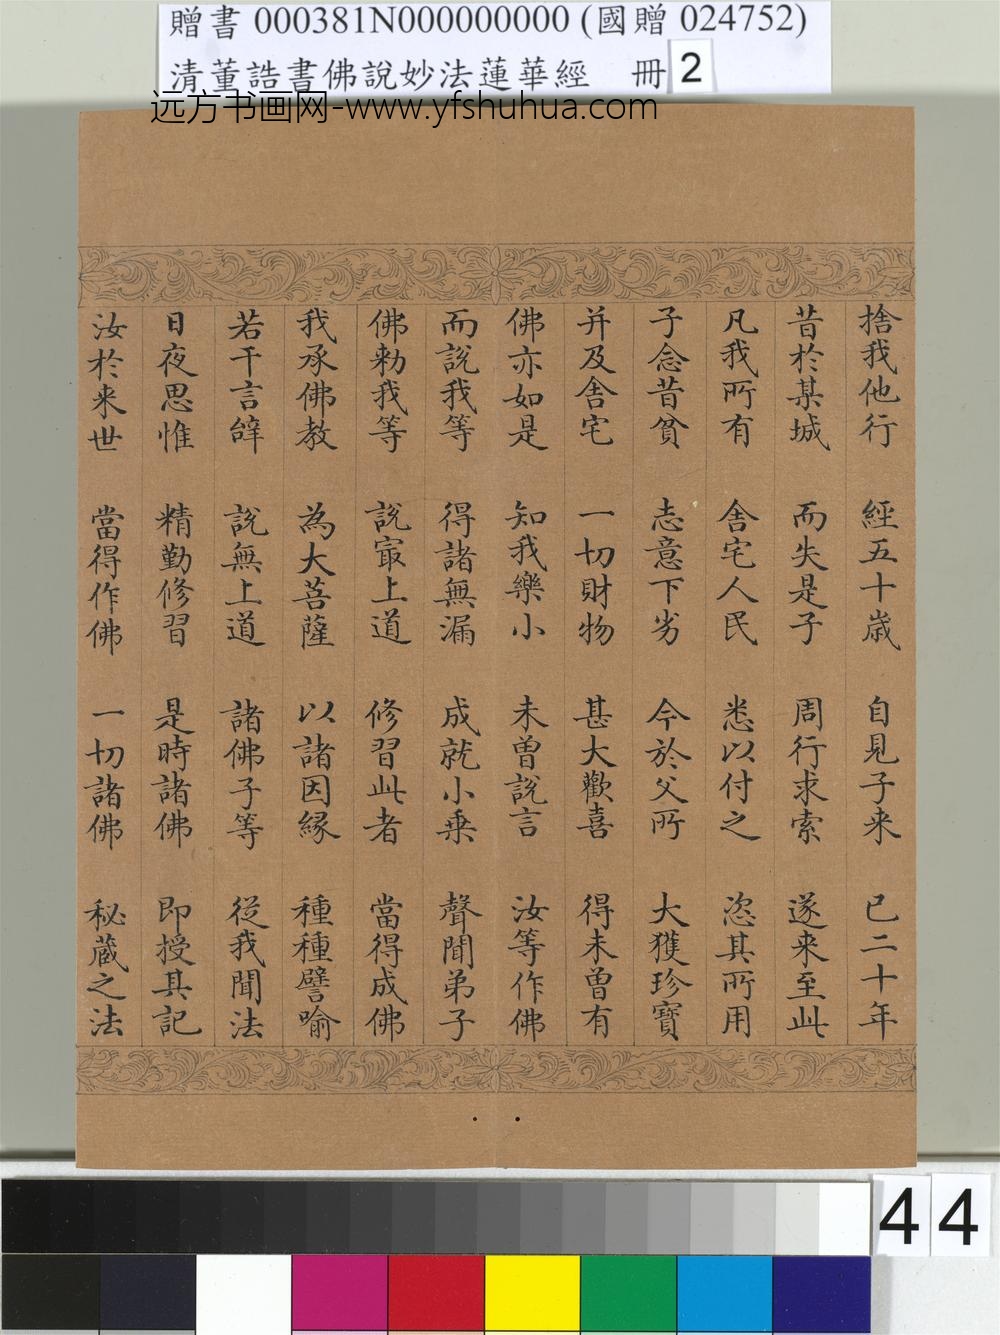 贈書 000381N000000000 (國贈 024752)
清董誥書佛說妙法蓮華經 冊 2
远方书画网-www.yfshuhua.com
捨我他行 經五十歲 自見子来 已二十年
昔於某城 而失是子 周行求索 遂来至此
凡我所有 舍宅人民 悉以付之 恣其所用
子念昔貧 志意下劣 今於父所 大獲珍寶
并及舍宅 一切財物 甚大歡喜 得未曾有
佛亦如是 知我樂小 未曾說言 汝等作佛
而說我等 得諸無漏 成就小乗 聲聞弟子
佛勅我等 說寂上道 修習此者 當得成佛
我承佛教 為大菩薩 以諸因緣 種種譬喻
若干言辝 說無上道 諸佛子等 從我聞法
日夜思惟 精勤修習 是時諸佛 即授其記
汝於来世 當得作佛 一切諸佛 秘蔵之法
44